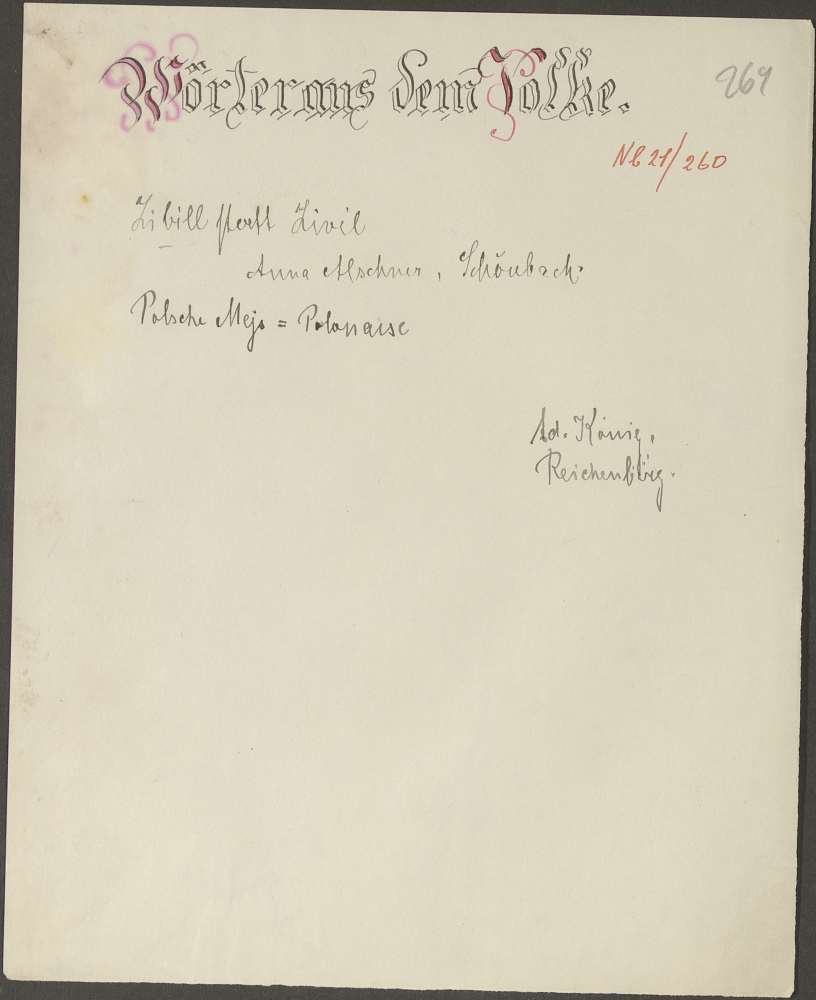 Wörter aus dem Volke.
269
Nb 21/260
Zibill statt Zivil
Anna Alschner, Schönbach.
Polsche Mejo = Polonaise
Ad. König,
Reichenberg.